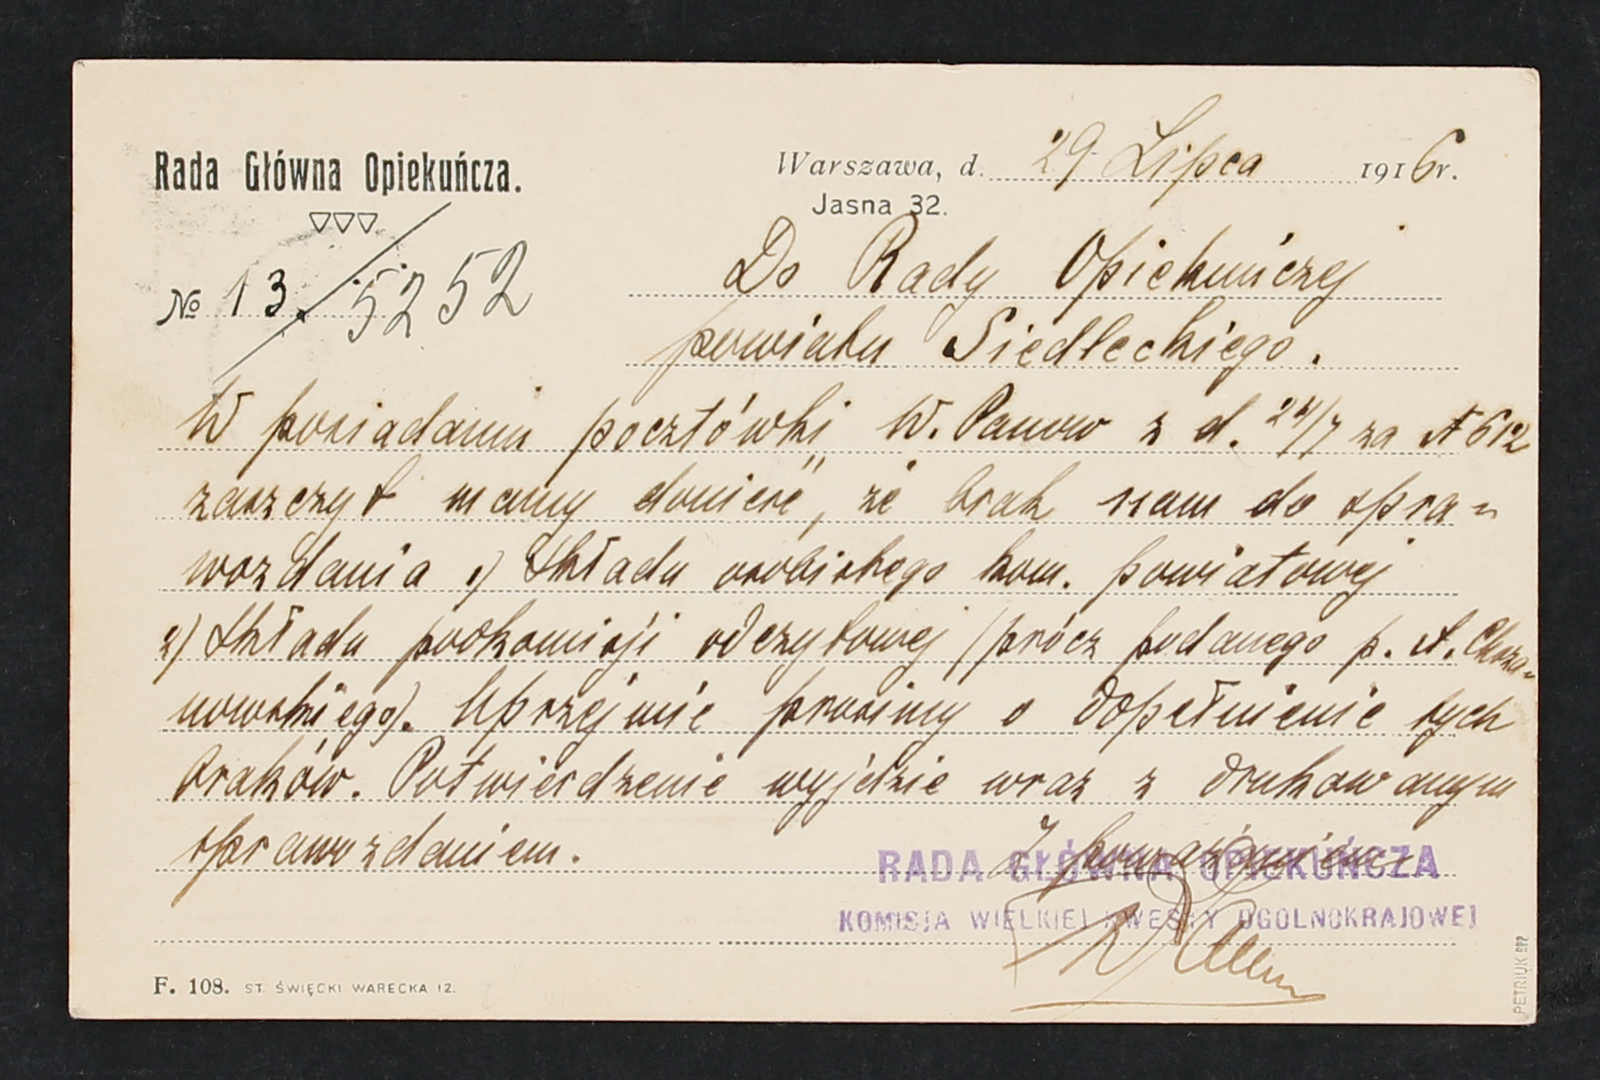 Rada Główna Opiekuńcza.
Warszawa, d. 29 Lipca 1916 r.
Jasna 32.
№ 13. / 5252
Do Rady Opiekuńczej
powiatu Siedleckiego.
W posiadaniu pocztówki W. Panow z d. 24/7 za № 612
zaszczyt mamy donieść, że brak nam do spra=
wozdania 1) Składu osobistego kom. powiatowej
2) Składu podkomisji odczytowej (prócz podanego p. A. Chrza=
nowskiego). Uprzejmie prosimy o dopełnienie tych
braków. Potwierdzenie wyjdzie wraz z drukowanym
sprawozdaniem.
Z poważaniem
RADA GŁÓWNA OPIEKUŃCZA
KOMISJA WIELKIEJ KWESTY OGOLNOKRAJOWEJ
F. 108. ST. ŚWIĘCKI WARECKA 12.
PETRIUK